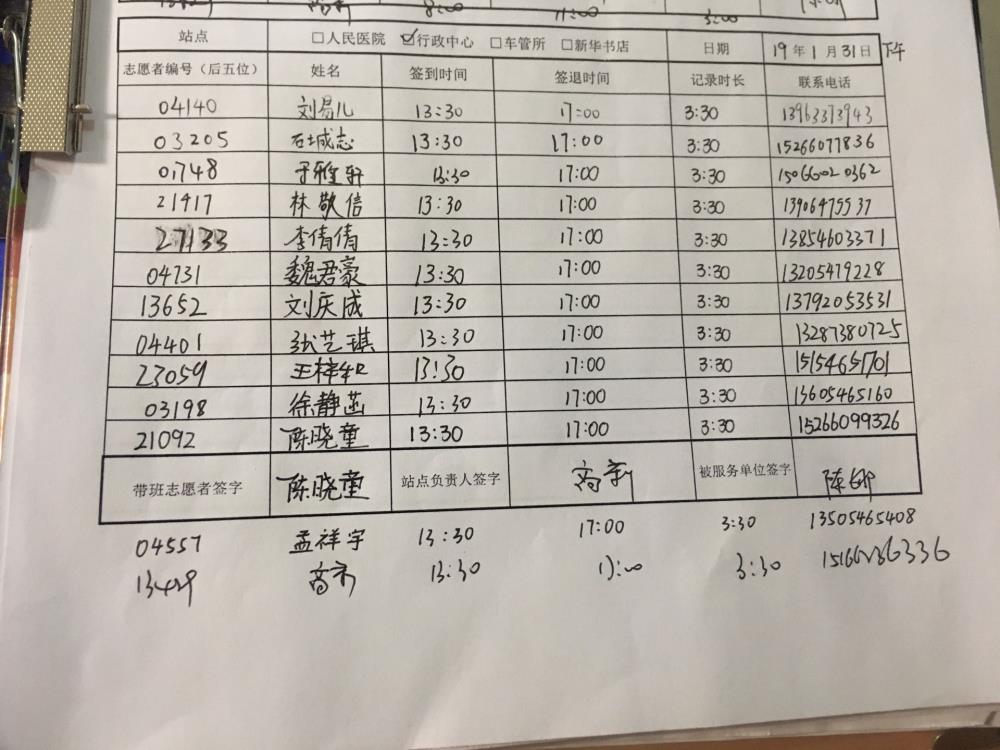 8:00 11:00 3:00
站点 □人民医院 ☑行政中心 □车管所 □新华书店 日期 19年1月31日 下午
志愿者编号（后五位） 姓名 签到时间 签退时间 记录时长 联系电话
04140 刘易儿 13:30 17:00 3:30 13963373943
03205 石城志 13:30 17:00 3:30 15266077836
01748 于雅轩 13:30 17:00 3:30 15066020362
21417 林敬信 13:30 17:00 3:30 13906475537
27133 李倩倩 13:30 17:00 3:30 13854603371
04731 魏君豪 13:30 17:00 3:30 13205479228
13652 刘庆成 13:30 17:00 3:30 13792053531
04401 张艺琪 13:30 17:00 3:30 13287380725
23059 王梓和 13:30 17:00 3:30 15154651701
03198 徐静菡 13:30 17:00 3:30 13605465160
21092 陈晓童 13:30 17:00 3:30 15266099326
带班志愿者签字 陈晓童 站点负责人签字 高新 被服务单位签字
04557 孟祥宇 13:30 17:00 3:30 13505465408
13429 高新 13:30 17:00 3:30 15166286336